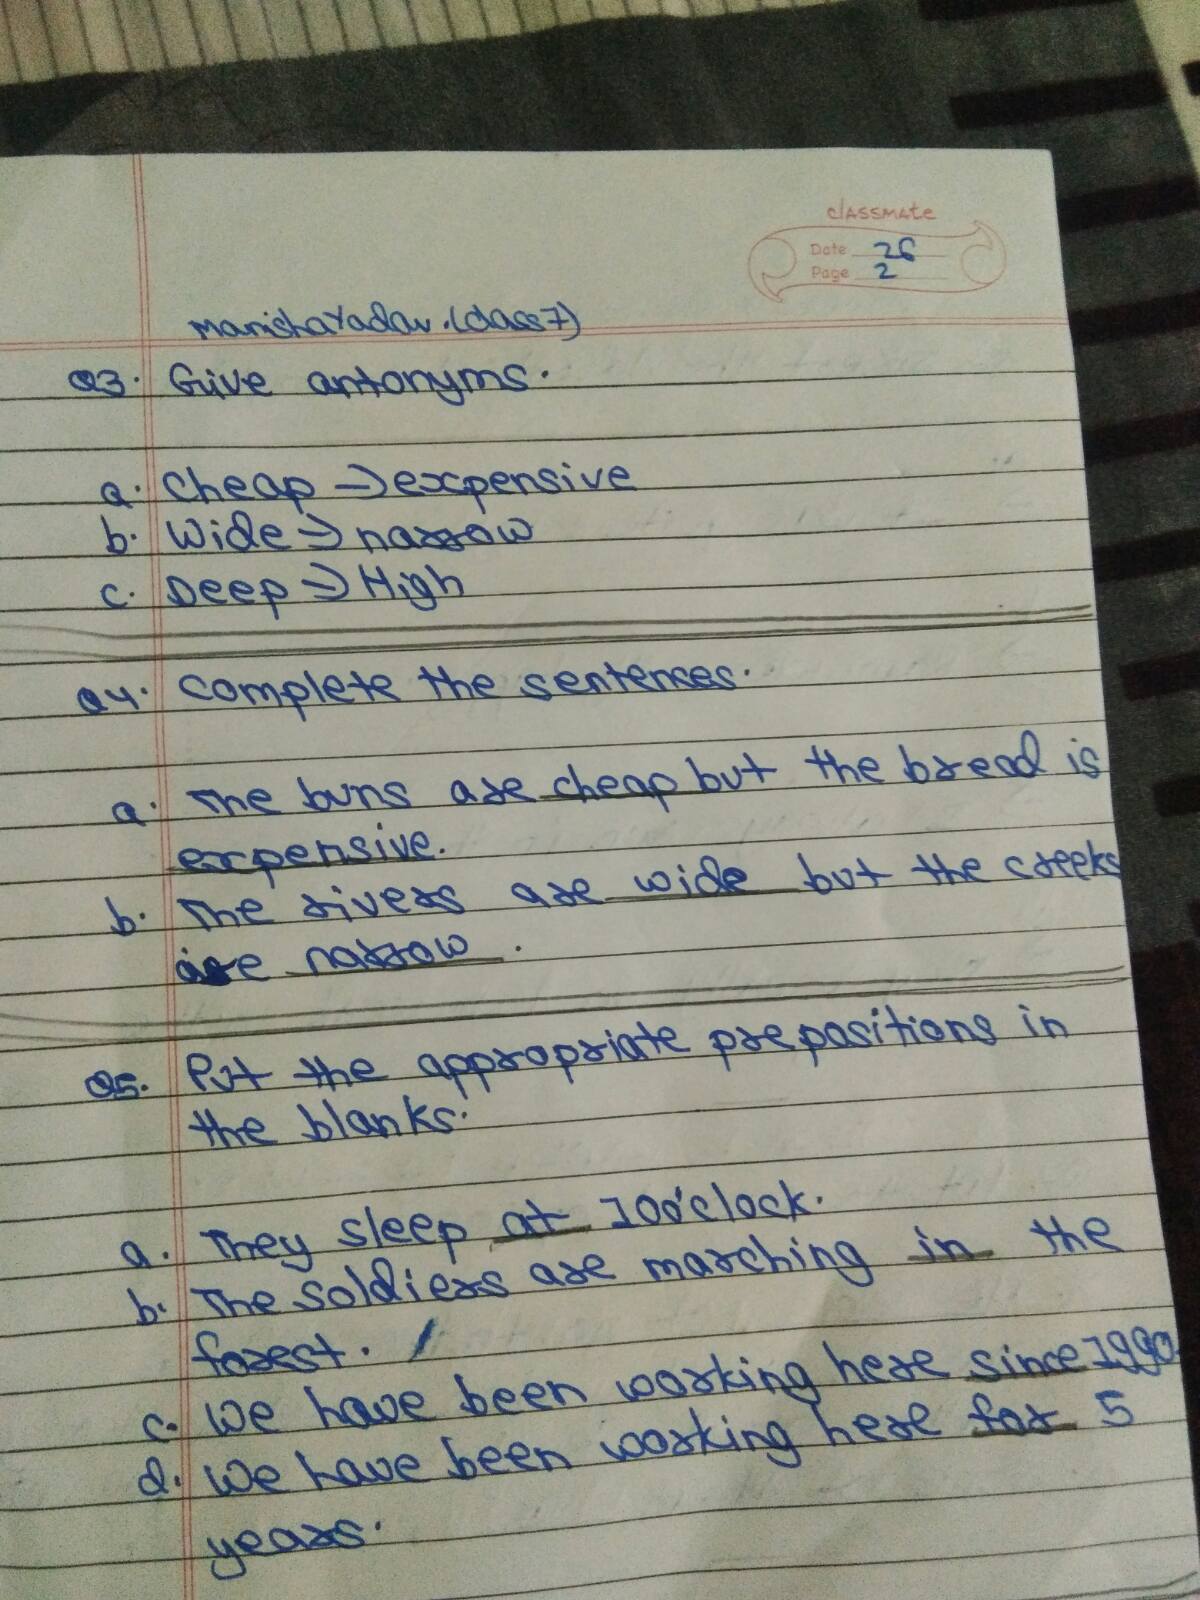 classmate
Date 26
Page 2
Manisha Yadav. (class 7)
Q3. Give antonyms.
a. Cheap → expensive
b. Wide → narrow
c. Deep → High
Q4. Complete the sentences.
a. The buns are cheap but the bread is
expensive.
b. The rivers are wide but the creeks
are narrow.
Q5. Put the appropriate prepositions in
the blanks.
a. They sleep at 10o'clock.
b. The soldiers are marching in the
forest.
c. We have been working here since 1990
d. We have been working here for 5
years.